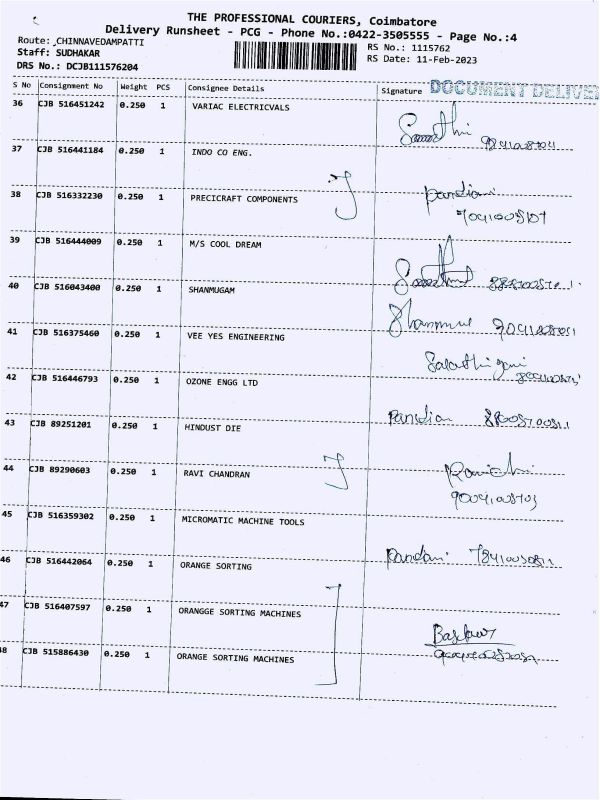 THE PROFESSIONAL COURIERS, Coimbatore
Delivery Runsheet - PCG - Phone No.:0422-3505555 - Page No.:4
Route: CHINNAVEDAMPATTI
Staff: SUDHAKAR
DRS No.: DCJB111576204
RS No.: 1115762
RS Date: 11-Feb-2023
S No Consignment No Weight PCS Consignee Details Signature DOCUMENT DELIVER
36 CJB 516451242 0.250 1 VARIAC ELECTRICVALS
37 CJB 516441184 0.250 1 INDO CO ENG.
38 CJB 516332230 0.250 1 PRECICRAFT COMPONENTS Pandiani
39 CJB 516444009 0.250 1 M/S COOL DREAM
40 CJB 516043400 0.250 1 SHANMUGAM
41 CJB 516375460 0.250 1 VEE YES ENGINEERING
42 CJB 516446793 0.250 1 OZONE ENGG LTD
43 CJB 89251201 0.250 1 HINDUST DIE Pandian
44 CJB 89290603 0.250 1 RAVI CHANDRAN
45 CJB 516359302 0.250 1 MICROMATIC MACHINE TOOLS
46 CJB 516442064 0.250 1 ORANGE SORTING
47 CJB 516407597 0.250 1 ORANGGE SORTING MACHINES
48 CJB 515886430 0.250 1 ORANGE SORTING MACHINES